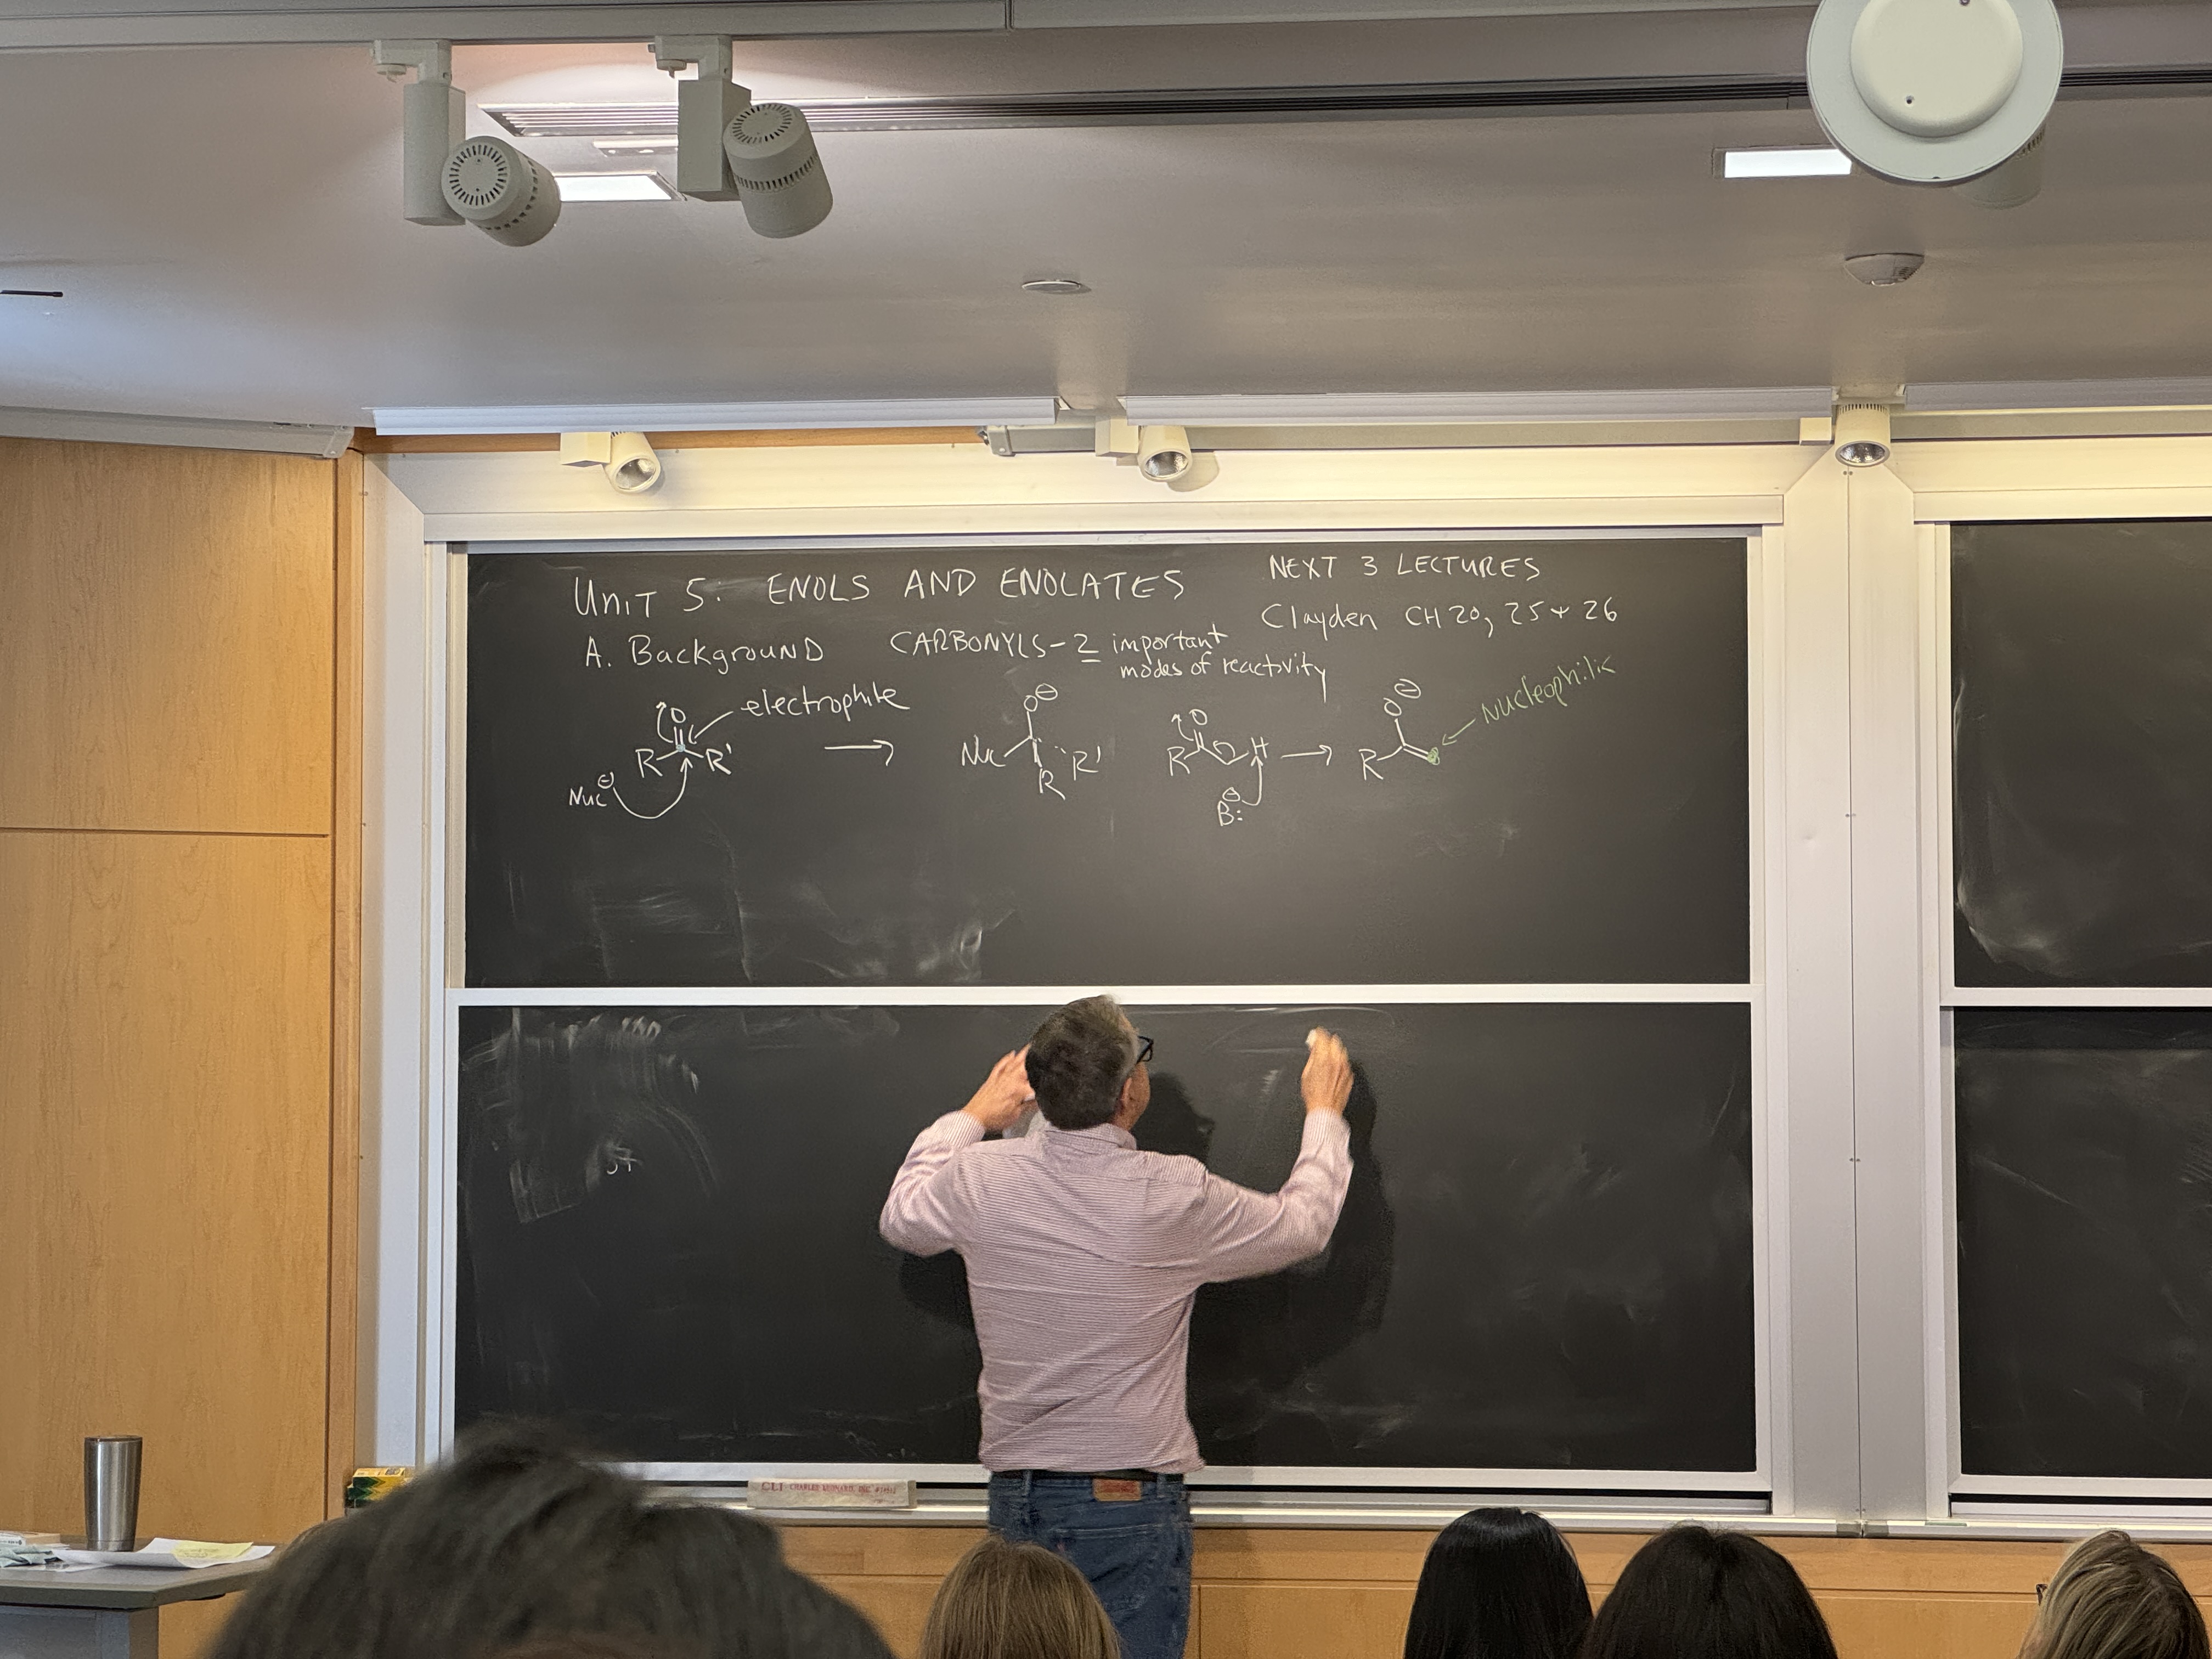 Unit 5: ENOLS AND ENOLATES
NEXT 3 LECTURES
Clayden CH 20, 25 + 26
A. Background CARBONYLS - 2 important
modes of reactivity
electrophile
O
R R'
Nuc ⊖
O ⊖
Nuc R R'
O
R H
⊖
B:
O ⊖
R
Nucleophilic
CLI CHARLES LEONARD, INC.